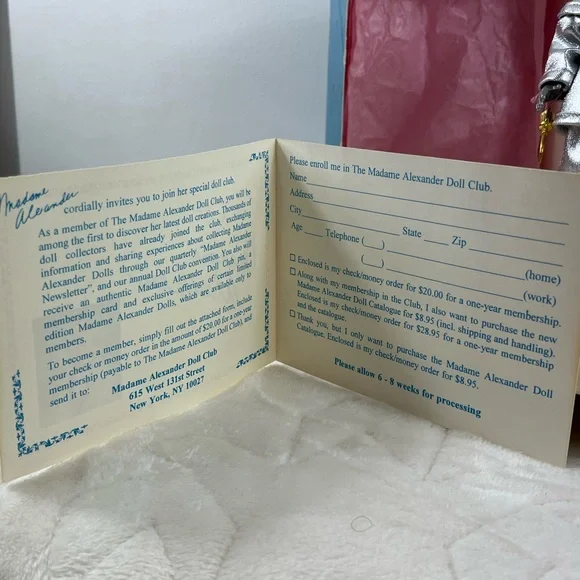 Madame
Alexander
cordially invites you to join her special doll club.
As a member of The Madame Alexander Doll Club, you will be
among the first to discover her latest doll creations. Thousands of
doll collectors have already joined the club, exchanging
information and sharing experiences about collecting Madame
Alexander Dolls through our quarterly "Madame Alexander
Newsletter", and our annual Doll Club convention. You also will
receive an authentic Madame Alexander Doll Club pin, a
membership card and exclusive offerings of certain limited
edition Madame Alexander Dolls, which are available only to
members.
To become a member, simply fill out the attached form, include
your check or money order in the amount of $20.00 for a one-year
membership (payable to The Madame Alexander Doll Club), and
send it to:
Madame Alexander Doll Club
615 West 131st Street
New York, NY 10027
Please enroll me in The Madame Alexander Doll Club.
Name
Address
City State Zip
Age Telephone ( )
(home)
( )
(work)
Enclosed is my check/money order for $20.00 for a one-year membership.
Along with my membership in the Club, I also want to purchase the new
Madame Alexander Doll Catalogue for $8.95 (incl. shipping and handling).
Enclosed is my check/money order for $28.95 for a one-year membership
and the catalogue.
Thank you, but I only want to purchase the Madame Alexander Doll
Catalogue, Enclosed is my check/money order for $8.95.
Please allow 6 - 8 weeks for processing